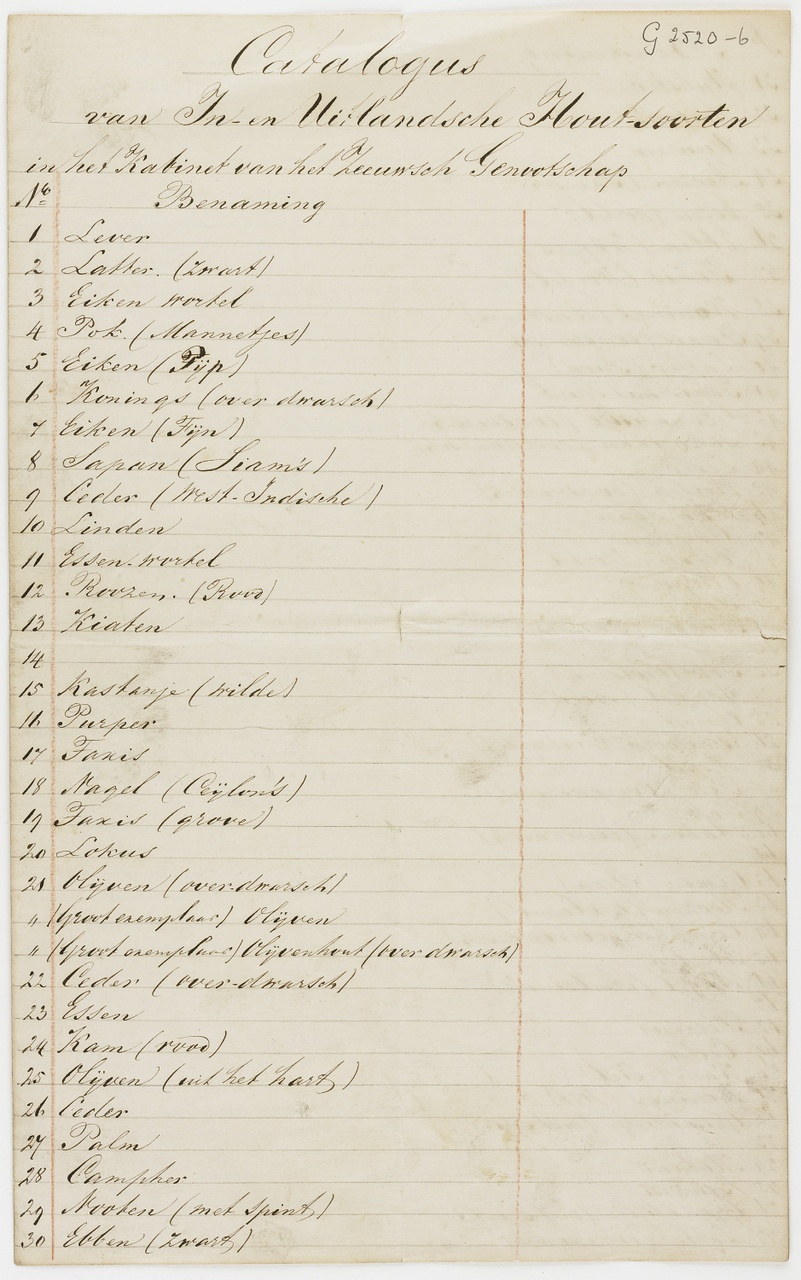 G 2520-6
Catalogus
van In- en Uitlandsche Hout-soorten
in het Kabinet van het Zeeuwsch Genootschap
No Benaming
1 Lever
2 Latter. (zwart)
3 Eiken wortel
4 Pok. (Mannetjes)
5 Eiken (Fijn)
6 Konings (over dwarsch)
7 Eiken (Fijn)
8 Sapan (Siam's)
9 Ceder (West-Indische)
10 Linden
11 Essen-wortel
12 Roozen. (Rood)
13 Kiaten
14
15 Kastanje (wilde)
16 Purper
17 Taxis
18 Nagel (Ceÿlon's)
19 Taxis (grove)
20 Lokus
21 Olijven (over-dwarsch)
" (Groot exemplaar) Olijven
" (Groot exemplaar) Olijvenhout (over dwarsch)
22 Ceder (over-dwarsch)
23 Essen
24 Kam (rood)
25 Olijven (uit het hart)
26 Ceder
27 Palm
28 Campher
29 Nooten (met spint)
30 Ebben (zwart)